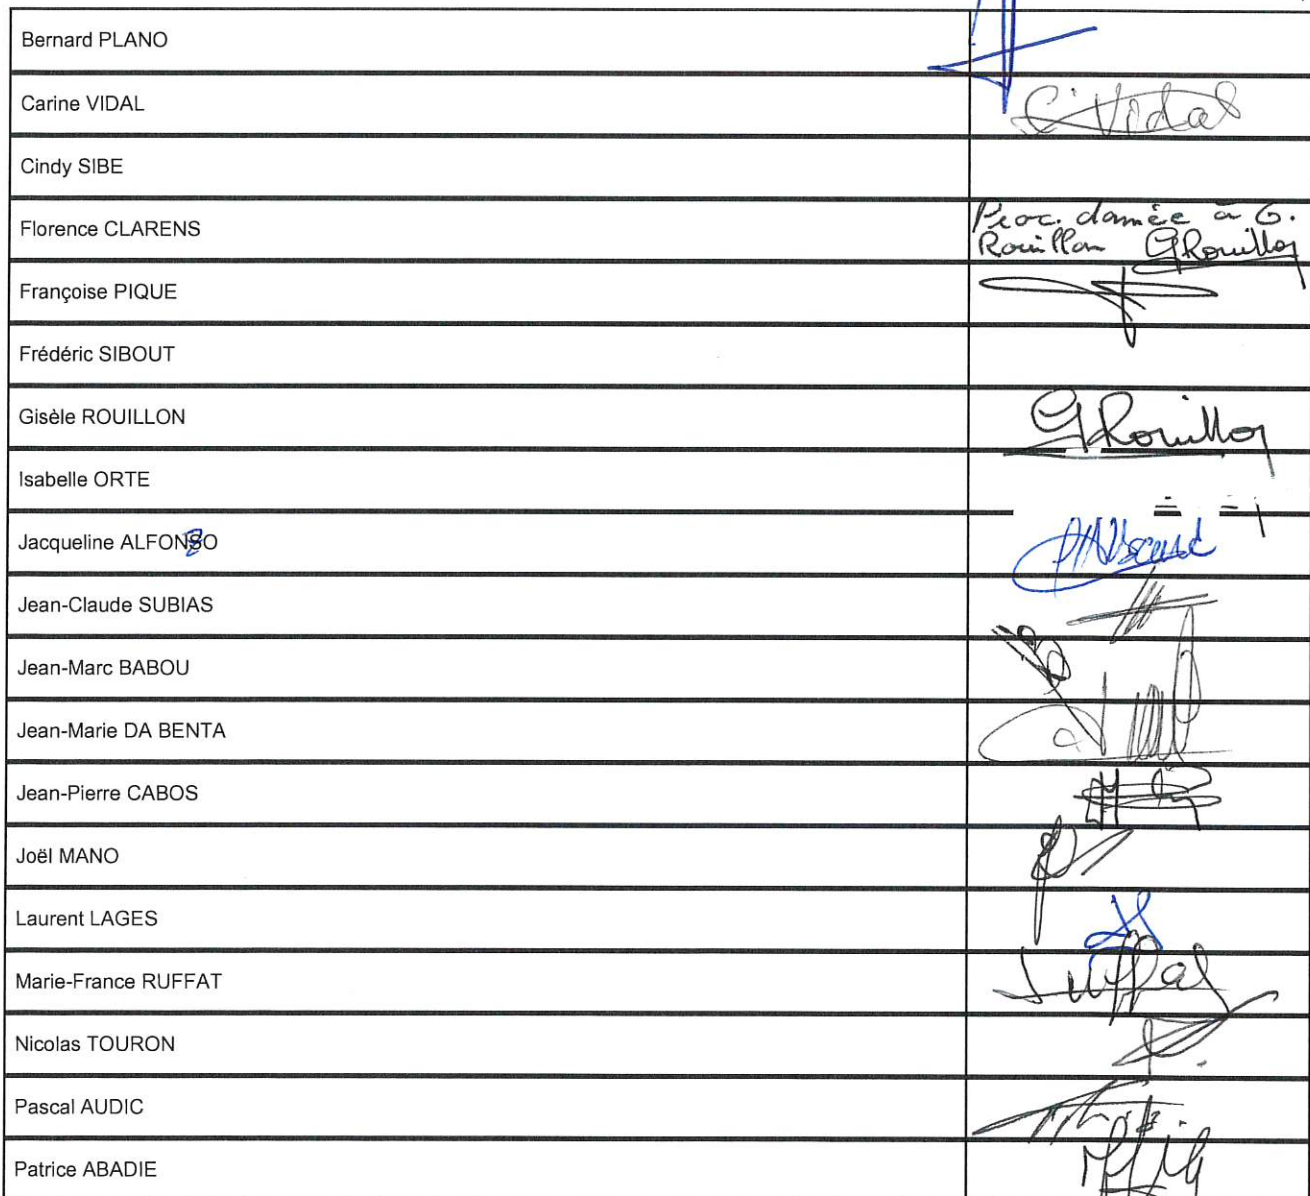 Bernard PLANO
Carine VIDAL
C Vidal
Cindy SIBE
Florence CLARENS
Proc. donnée à G.
Rouillon GRouillon
Françoise PIQUE
Frédéric SIBOUT
Gisèle ROUILLON
GRouillon
Isabelle ORTE
Jacqueline ALFONZO
Jean-Claude SUBIAS
Jean-Marc BABOU
Jean-Marie DA BENTA
Jean-Pierre CABOS
Joël MANO
Laurent LAGES
Marie-France RUFFAT
Ruffat
Nicolas TOURON
Pascal AUDIC
Patrice ABADIE